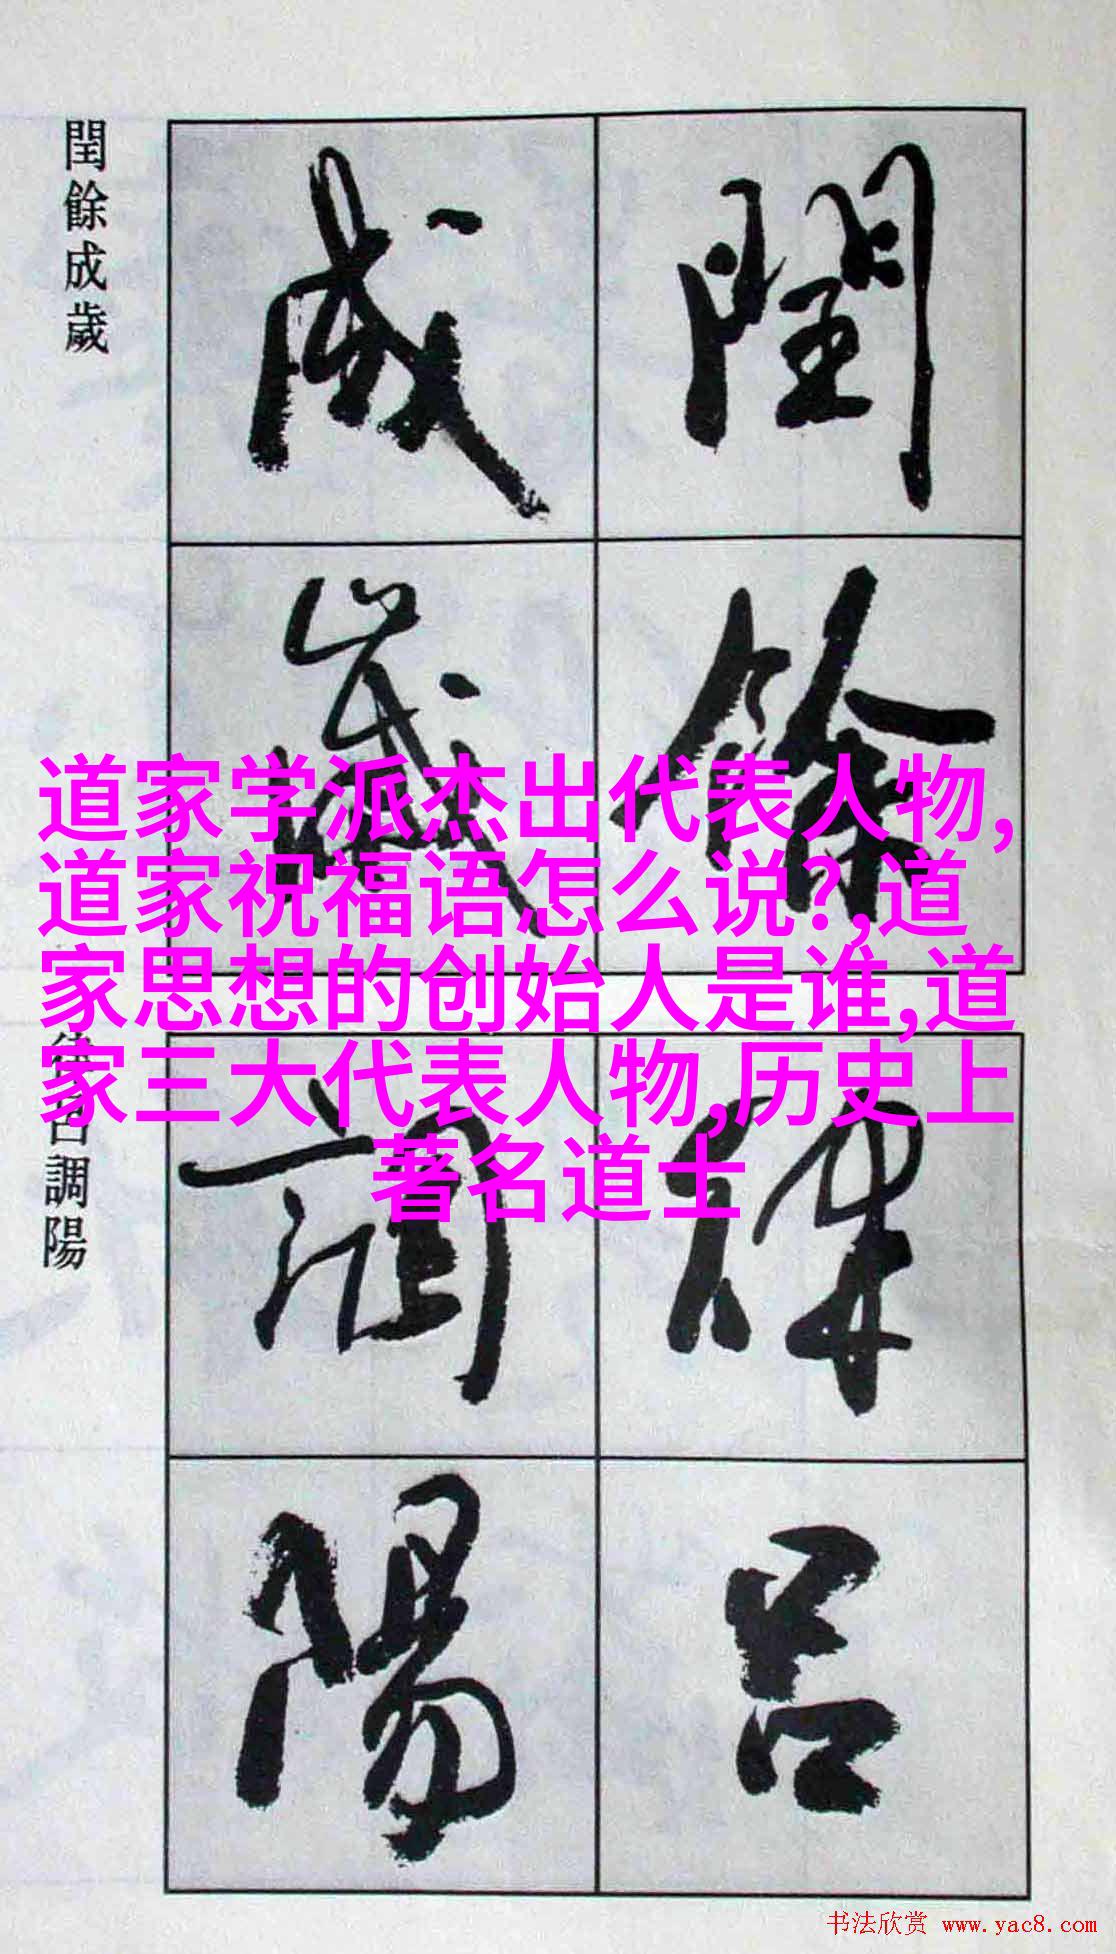 閏餘成歲
閏餘
成歲
道家学派杰出代表人物,
道家祝福语怎么说?,道
家思想的创始人是谁,道
家三大代表人物,历史上
著名道士
調陽
律呂
調陽
书法欣赏 www.yac8.com